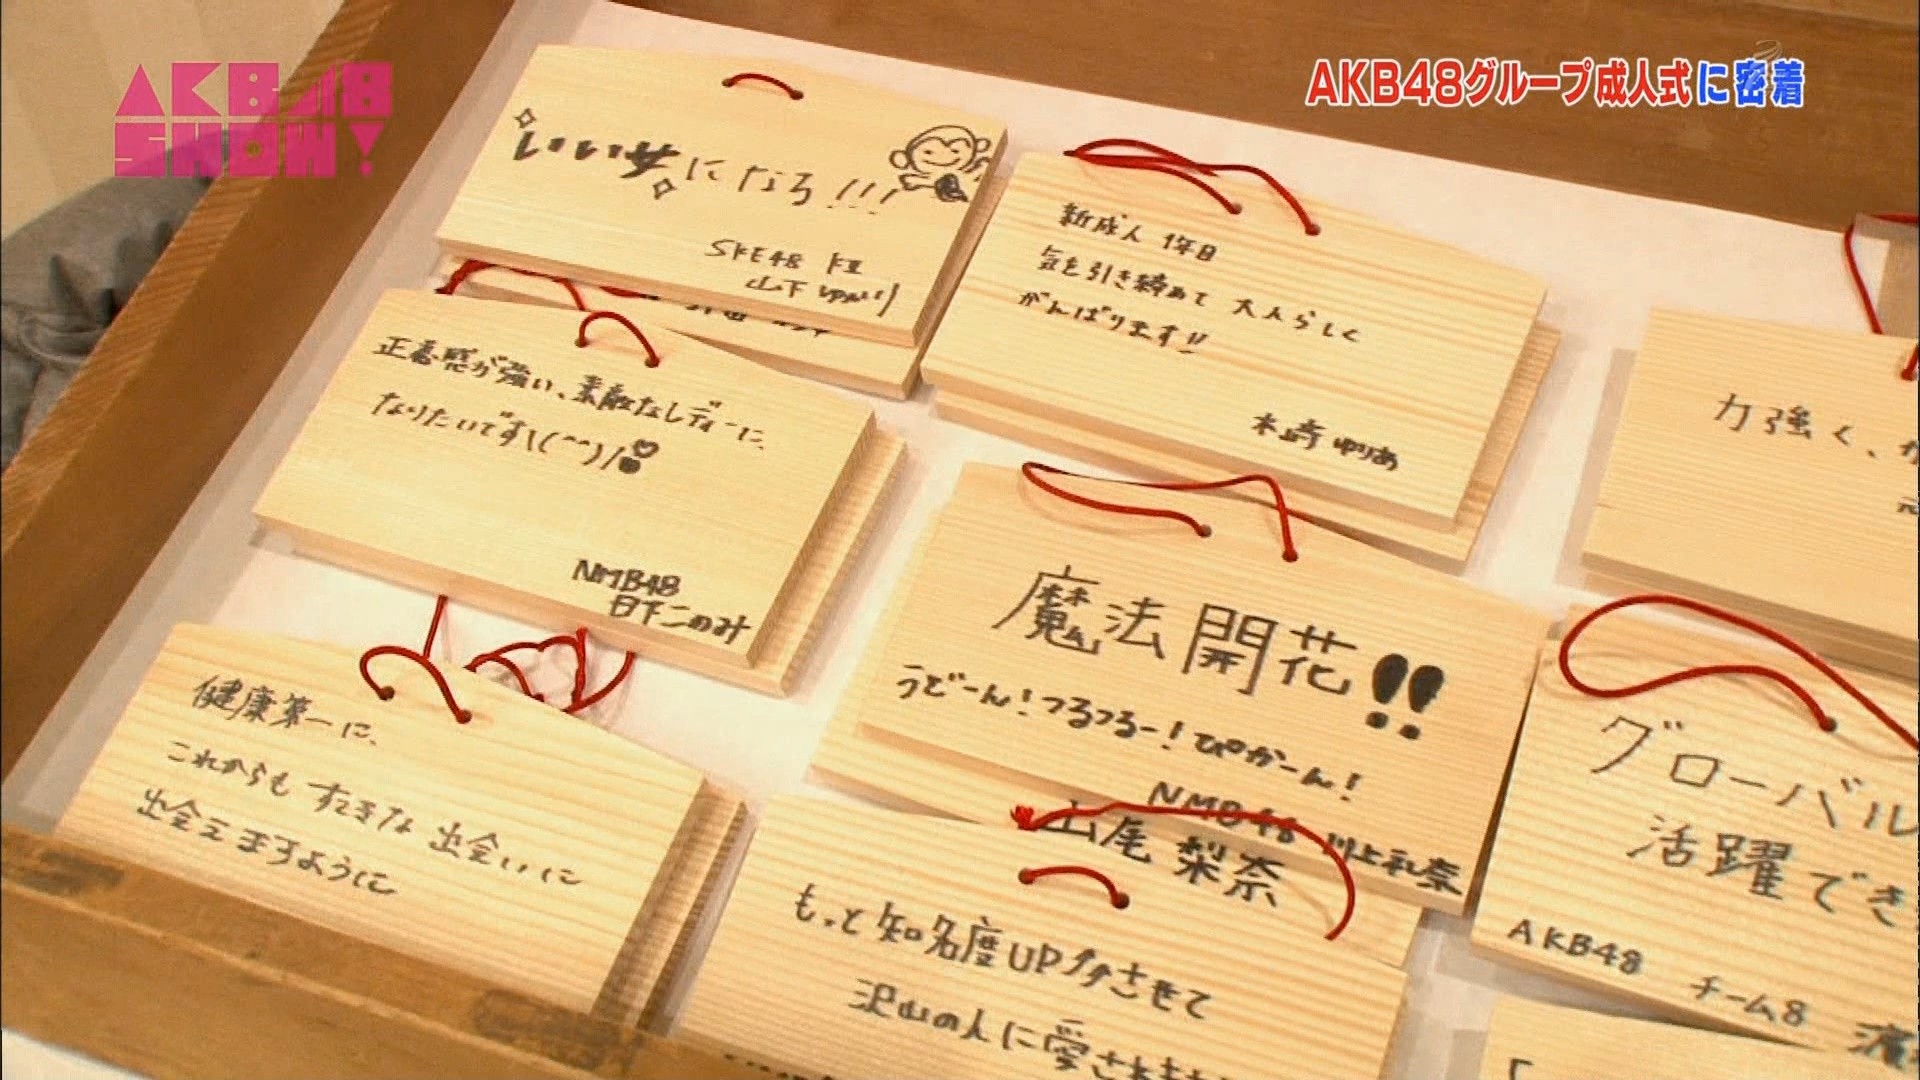 AKB48
SHOW!
AKB48グループ成人式に密着
いい女になろ!!!
SKE48 KⅡ
山下ゆかり
新成人 1年目
気を引き締めて 大人らしく
がんばります!!
木﨑ゆりあ
正義感が強い、素敵なレディーに、
なりたいです\(^^)/
NMB48
日下このみ
力強く、
魔法開花!!
うどーん!つるつるー!ぴかーん!
NMB48 川上礼奈
山尾 梨奈
健康第一に、
これからも すてきな 出会いに
出会えますように
もっと知名度UPググさせて
沢山の人に愛され
グローバル
活躍でき
AKB48 チーム8